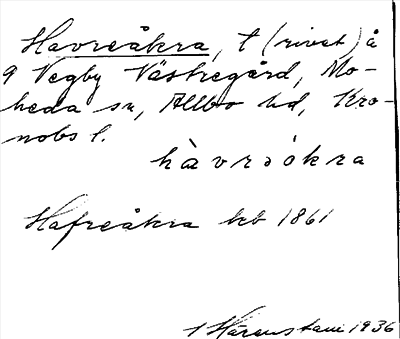 Havreåkra, t (rivet) å
9 Vegby Västregård, Mo-
heda sn, Allbo hd, Kro-
nobs l.
hàvrəòkra
Hafreåkra kb 1861
1936